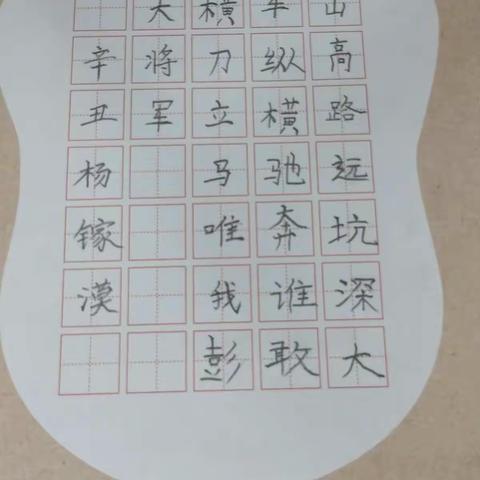 山高路远坑深大
军纵横驰奔谁敢
横刀立马唯我彭
大将军
辛丑杨镓漠